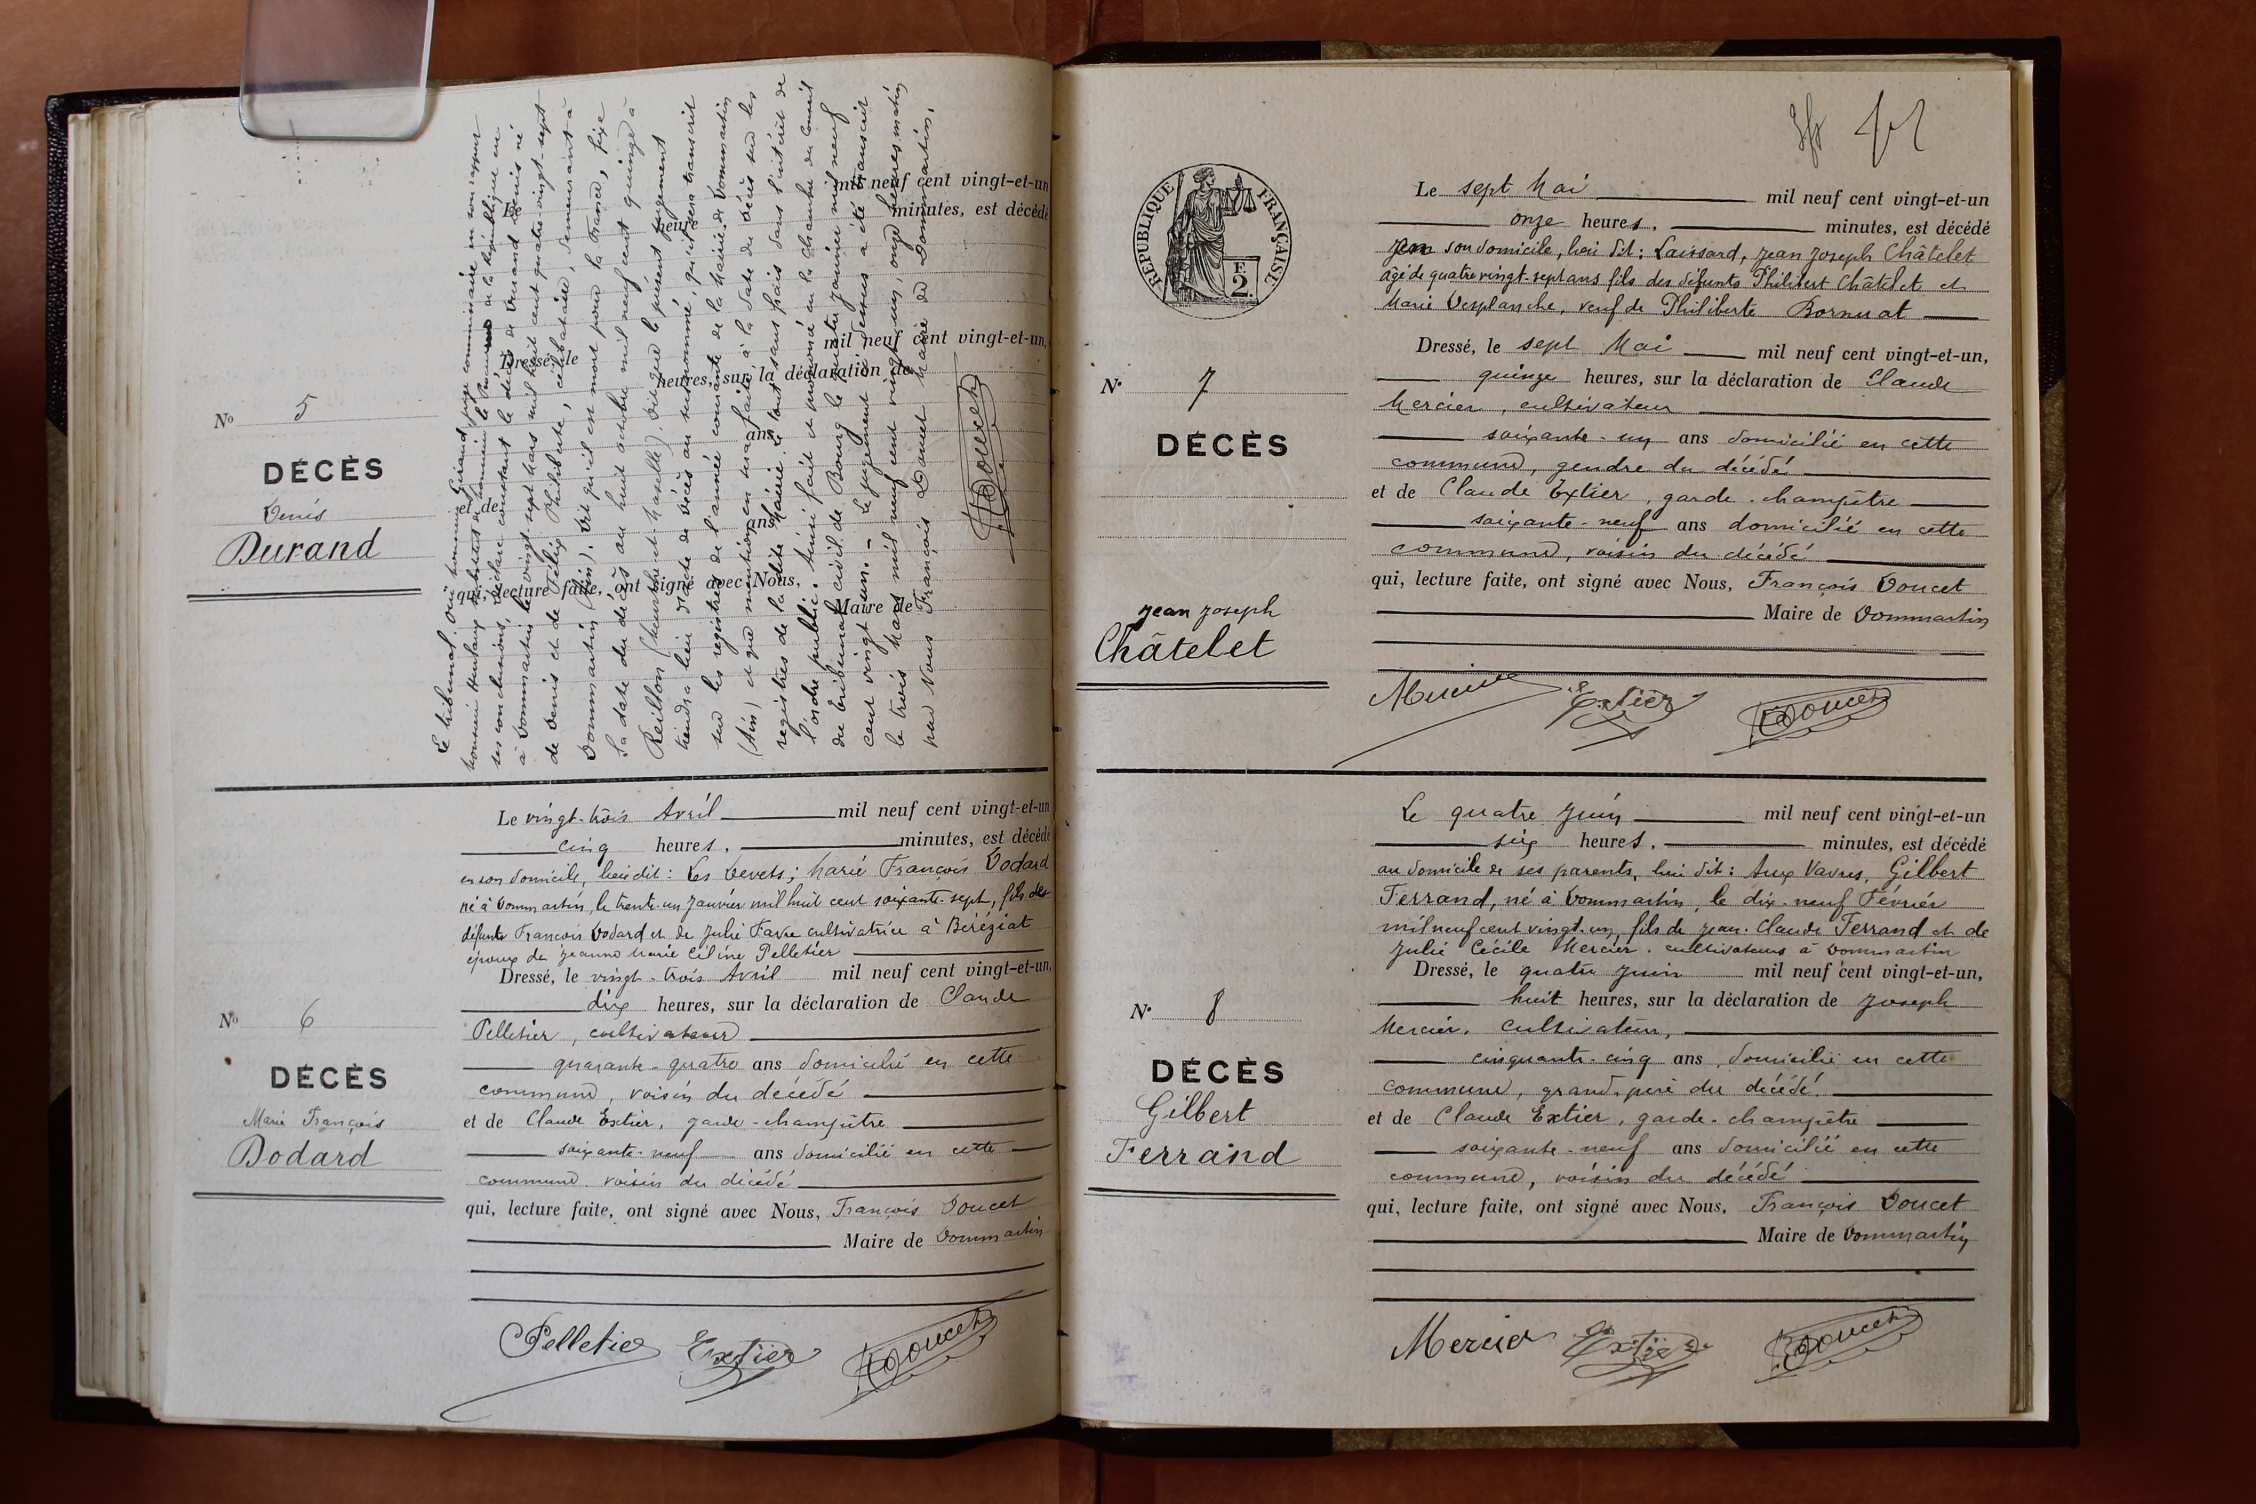 N° 5
DÉCÈS
Denis
Durand
Le
mil neuf cent vingt-et-un
heure
minutes, est décédé
Dressé, le
mil neuf cent vingt-et-un,
heures, sur la déclaration de
ans
et de
ans
qui, lecture faite, ont signé avec Nous,
Maire de
Le tribunal, ouï Monsieur Giraud juge commissaire en son rapport
ses conclusions, déclare constant le décès de Durand Denis né
à Dommartin le vingt-sept Mars mil huit cent quatre-vingt-sept
de Denis et de Félix Philiberte, célibataire, demeurant à
Dommartin (Ain). Dit qu'il est mort pour la France, fixe
la date du décès au huit octobre mil neuf cent quinze à
Reillon (Meurthe-et-Moselle). Dit que le présent jugement
tiendra lieu d'acte de décès au susnommé, qu'il sera transcrit
sur les registres de l'année courante de la Mairie de Dommartin
(Ain) et que mention en sera faite à la date du décès sur les
registres de la dite Mairie. Le tout sans frais dans l'intérêt de
l'ordre public. Ainsi fait et prononcé en la chambre du Conseil
du tribunal civil de Bourg le quatre janvier mil neuf
cent vingt-un. - Le jugement ci-dessus a été transcrit
le trois Mars mil neuf cent vingt-un, onze heures matin
par Nous François Doucet Maire de Dommartin.
Doucet
N° 6
DÉCÈS
Marie François
Dodard
Le vingt-trois Avril mil neuf cent vingt-et-un
cinq heures, minutes, est décédé
en son domicile, lieu dit: Les Devets; Marie François Dodard
né à Dommartin, le trente-un Janvier mil huit cent soixante-sept, fils de
défunt François Dodard et de Julie Favre cultivatrice à Béréziat
époux de Jeanne Marie Céline Pelletier
Dressé, le vingt-trois Avril mil neuf cent vingt-et-un,
dix heures, sur la déclaration de Claude
Pelletier, cultivateur
quarante-quatre ans domicilié en cette
commune, voisin du décédé
et de Claude Extier, garde-champêtre
soixante-neuf ans domicilié en cette
commune voisin du décédé
qui, lecture faite, ont signé avec Nous, François Doucet
Maire de Dommartin
Pelletier Extier Doucet
RÉPUBLIQUE FRANÇAISE
E
2
N° 7
DÉCÈS
Jean Joseph
Châtelet
Le sept Mai mil neuf cent vingt-et-un
onze heures, minutes, est décédé
en son domicile, lieu dit: Laissard, Jean Joseph Châtelet
âgé de quatre vingt-sept ans fils des défunts Philibert Châtelet et
Marie Desplanche, veuf de Philiberte Bornerat
Dressé, le sept Mai mil neuf cent vingt-et-un,
quinze heures, sur la déclaration de Claude
Mercier, cultivateur
soixante-un ans domicilié en cette
commune, gendre du décédé
et de Claude Extier, garde-champêtre
soixante-neuf ans domicilié en cette
commune, voisin du décédé
qui, lecture faite, ont signé avec Nous, François Doucet
Maire de Dommartin
Mercier Extier Doucet
N° 8
DÉCÈS
Gilbert
Ferrand
Le quatre Juin mil neuf cent vingt-et-un
six heures, minutes, est décédé
au domicile de ses parents, lieu dit: Aux Vavres, Gilbert
Ferrand, né à Dommartin, le dix-neuf Février
mil neuf cent vingt-un, fils de Jean-Claude Ferrand et de
Julie Cécile Mercier, cultivateurs à Dommartin
Dressé, le quatre Juin mil neuf cent vingt-et-un,
huit heures, sur la déclaration de Joseph
Mercier, cultivateur,
cinquante-cinq ans, domicilié en cette
commune, grand-père du décédé
et de Claude Extier, garde-champêtre
soixante-neuf ans domicilié en cette
commune, voisin du décédé
qui, lecture faite, ont signé avec Nous, François Doucet
Maire de Dommartin
Mercier Extier Doucet